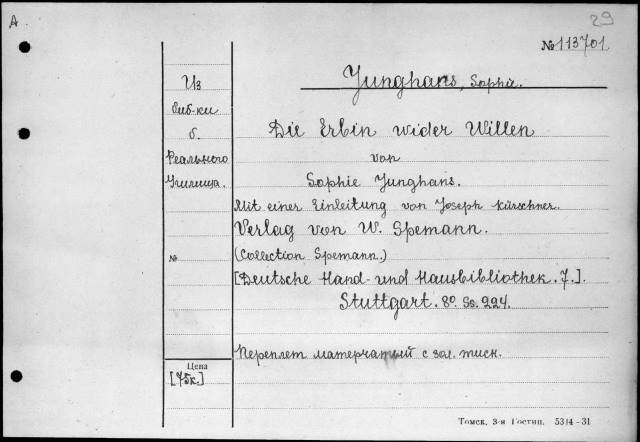 A
29
№113701
Из
биб-ки
б.
Реального
Училища.
№
Цена
[75к.]
Junghans, Sophie.
Die Erbin wider Willen
von
Sophie Junghans.
Mit einer Einleitung von Joseph Kürschner.
Verlag von W. Spemann.
(Collection Spemann.)
[Deutsche Hand- und Hausbibliothek. 7.].
Stuttgart. 8o. Ss. 224.
Переплет матерчатый с зол. тисн.
Томск, 3-я Гостип. 5314-31